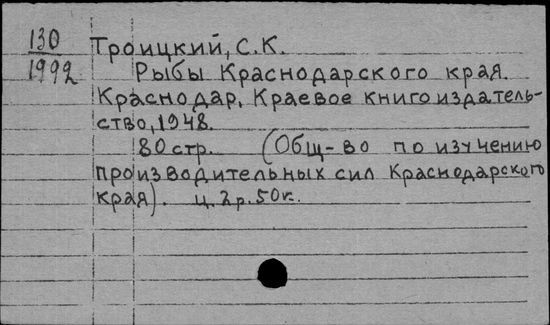 130 Троицкий, С.К.
1992 Рыбы Краснодарского края.
Краснодар, Краевое книгоиздатель-
ство, 1948.
80 стр. (Общ-во по изучению
производительных сил Краснодарского
края). ц. 2 р. 50 к.